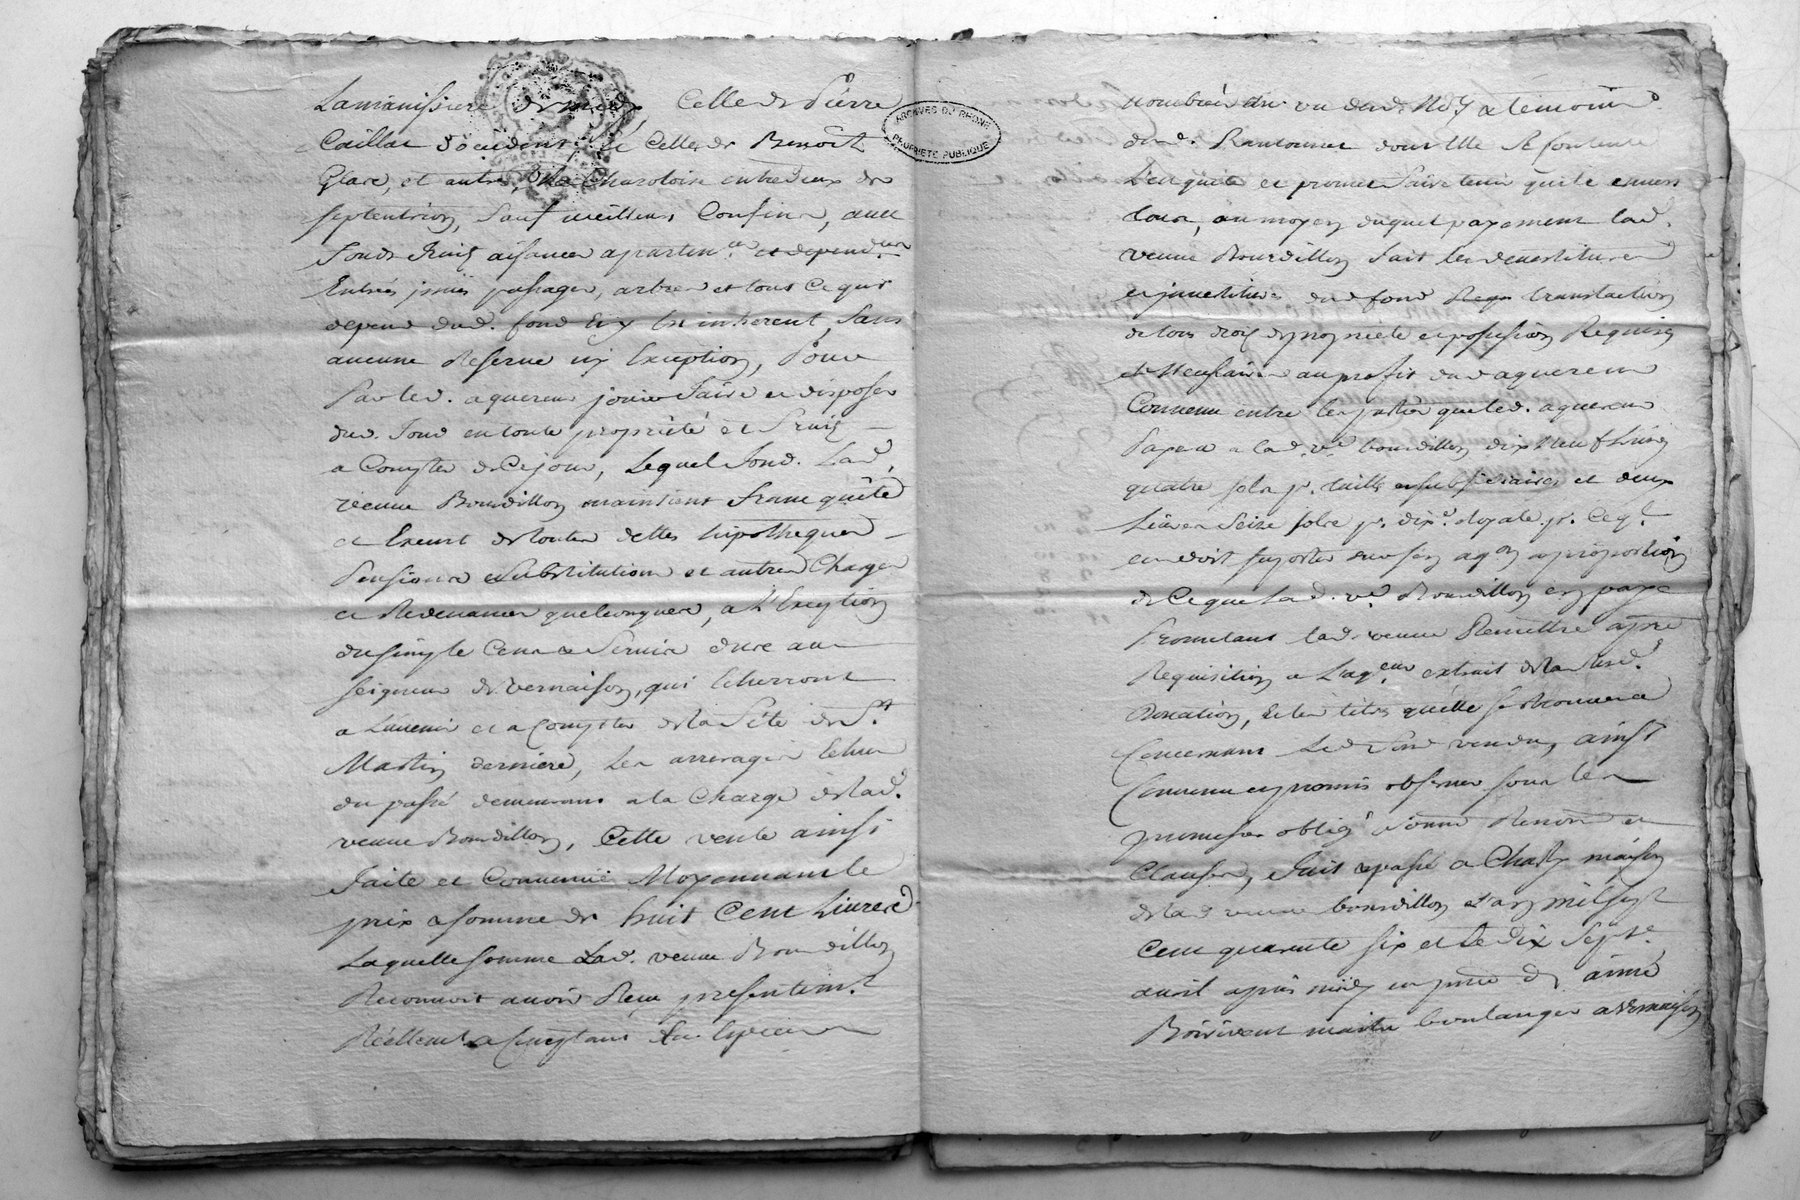 Lamanissiere de midy, Celle de Pierre
Caillat d'occident, Et Celle de Benoît
Glare, et autres, Une Charotoire entredeux de
septentrion, sauf meilleurs Confins, avec
fonds fruis aisances apartin.ces et depend.ces
Entrées, juies passages, arbres et tout Ce qui
depend dud. fond Et y Est inherent, Sans
aucune Reserve ny Exception, Pour
Par led. aquereur jouir faire et disposer
dud. fond en toute proprieté et fruis
a Compter de Ce jour, Lequel fond. Lad.
veuve Bourdillon maintient franc quitte
et Exemt de toutes dettes hipotheques
Pensions Substitution et autres Charges
et Redevances quelconques, a L'Exeption
du simple Cens et Servis dure au
seigneur de vernaison, qui Echerront
a Lavenir et a Compter de la fête de St.
Martin derniere, Les arrerages Echus
du passé demeurans a la Charge de lad.
veuve Bourdillon, Cette vente ainsi
faite et Convenue Moyennant le
prix et somme de huit Cent Livres
Laquelle somme Lad. veuve Bourdillon
Reconnoit avoir Reçu presentem.t
Réellem.t et Comptant En Especes
nombrées au vu dud. No.re et temoins
dud. Rantonnet dont Elle Se contente
L'en quitte et promet faire tenir quitte envers
tous, au moyen duquel payement lad.
veuve Bourdillon fait les devestitures
et jnvestitures dud fond Reqs translation
de tous drois de proprieté et possession Requises
et Necessaires au profit dud aquereur
Convenu entre les parties que led. aquereur
Payera a lad. ve. bourdillon dix Neuf Livres
quatre sols pr. taille et subsidiaires et deux
Livres Seize sols pr. dixe. Royale pr. Ce q.
en doit suporter sur son aqon a proportion
de Ce que Lad. ve. Bourdillon en paye
Promettant lad. veuve Remettre apres
Requisition a L'aq.eur extrait de la susd.
Donation, Et les titres qu'elle se trouvera
Concernant Led fond vendu, ainsi
Convenu et promis observer sous les
promesses oblig. Renon et
Clauses, fait et passé a Charly maison
de lad veuve bourdillon L'an mil sept
Cent quarante six et Le Dix Sept.e
avril après midy en pnce de aimé
Boirivent maitre boulanger a vernaison
ARCHIVES DU RHÔNE
PROPRIÉTÉ PUBLIQUE